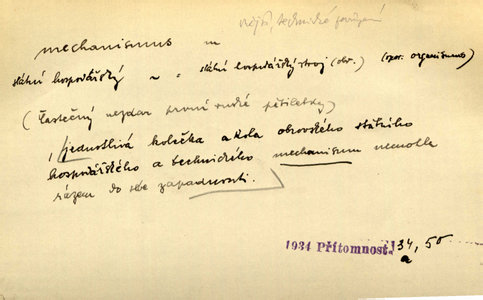 technické
mechanismus m
státní hospodářský ~ státní hospodářský stroj (obr.) (opor. organismus)
(Částečný nezdar první ruské pětiletky)
, jednotlivá kolečka a kola obrovského státního
hospodářského a technického mechanism nemohla
rázem do sebe zapadnouti.
1934 Přítomnost. 34, 50
a